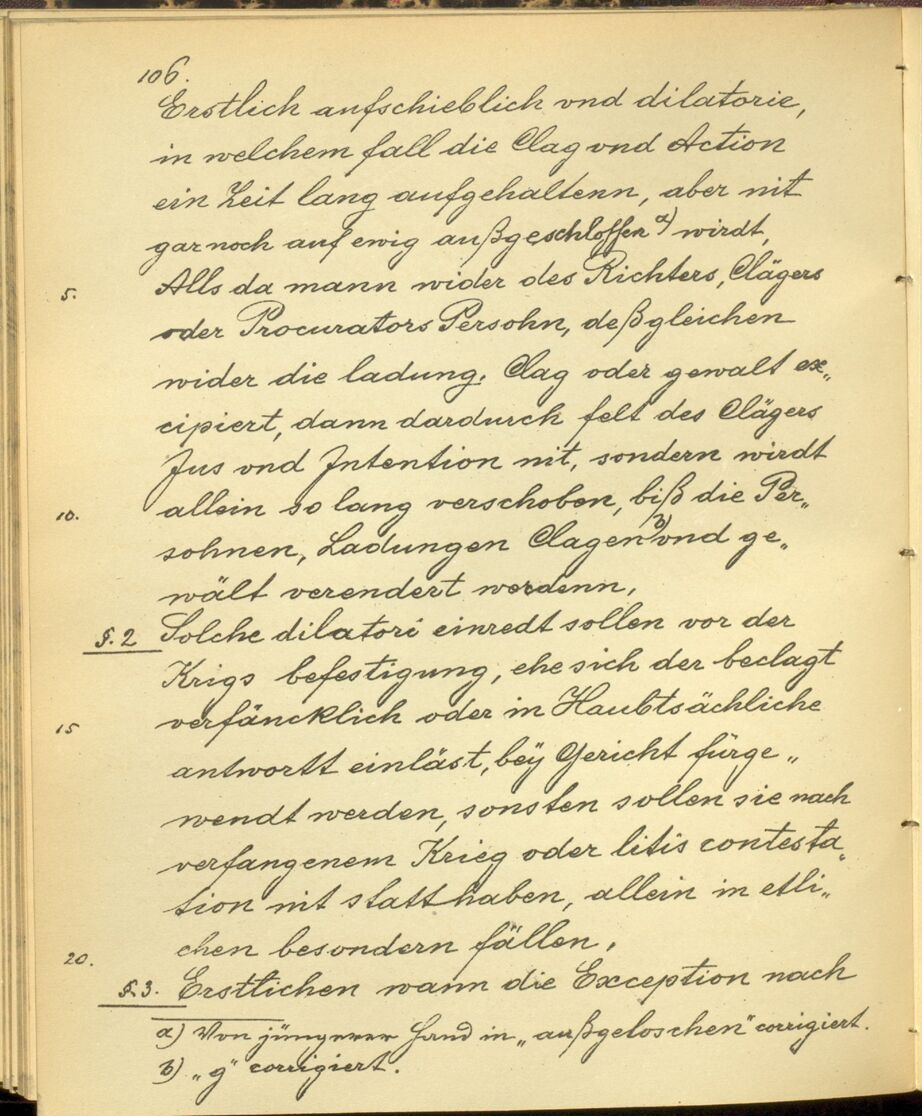 106.
Erstlich aufschieblich vnd dilatorie,
in welchem fall die Clag vnd Action
ein Zeit lang aufgehaltenn, aber nit
gar noch auf ewig außgeschloffen a) wirdt,
5. Alls da mann wider des Richters, Clägers
oder Procurators Persohn, deßgleichen
wider die ladung, Clag oder gewalt ex„
cipiert, dann dardurch felt des Clägers
Jus vnd Intention nit, sondern wirdt
10. allein so lang verschoben, biß die Per„
sohnen, Ladungen Clagen b) vnd ge„
wält verendert werdenn.
§. 2 Solche dilatori einredt sollen vor der
Krigs befestigung, ehe sich der beclagt
15 verfäncklich oder in Haubtsächliche
antwortt einläst, beÿ Gericht fürge„
wendt werden, sonsten sollen sie nach
verfangenem Krieg oder litis contesta„
tion nit statt haben, allein in etli„
20. chen besondern fällen.
§. 3. Erstlichen wann die Exception nach
a) Von jüngerer Hand in „außgeloschen“ corrigiert.
b) „g“ corrigiert.